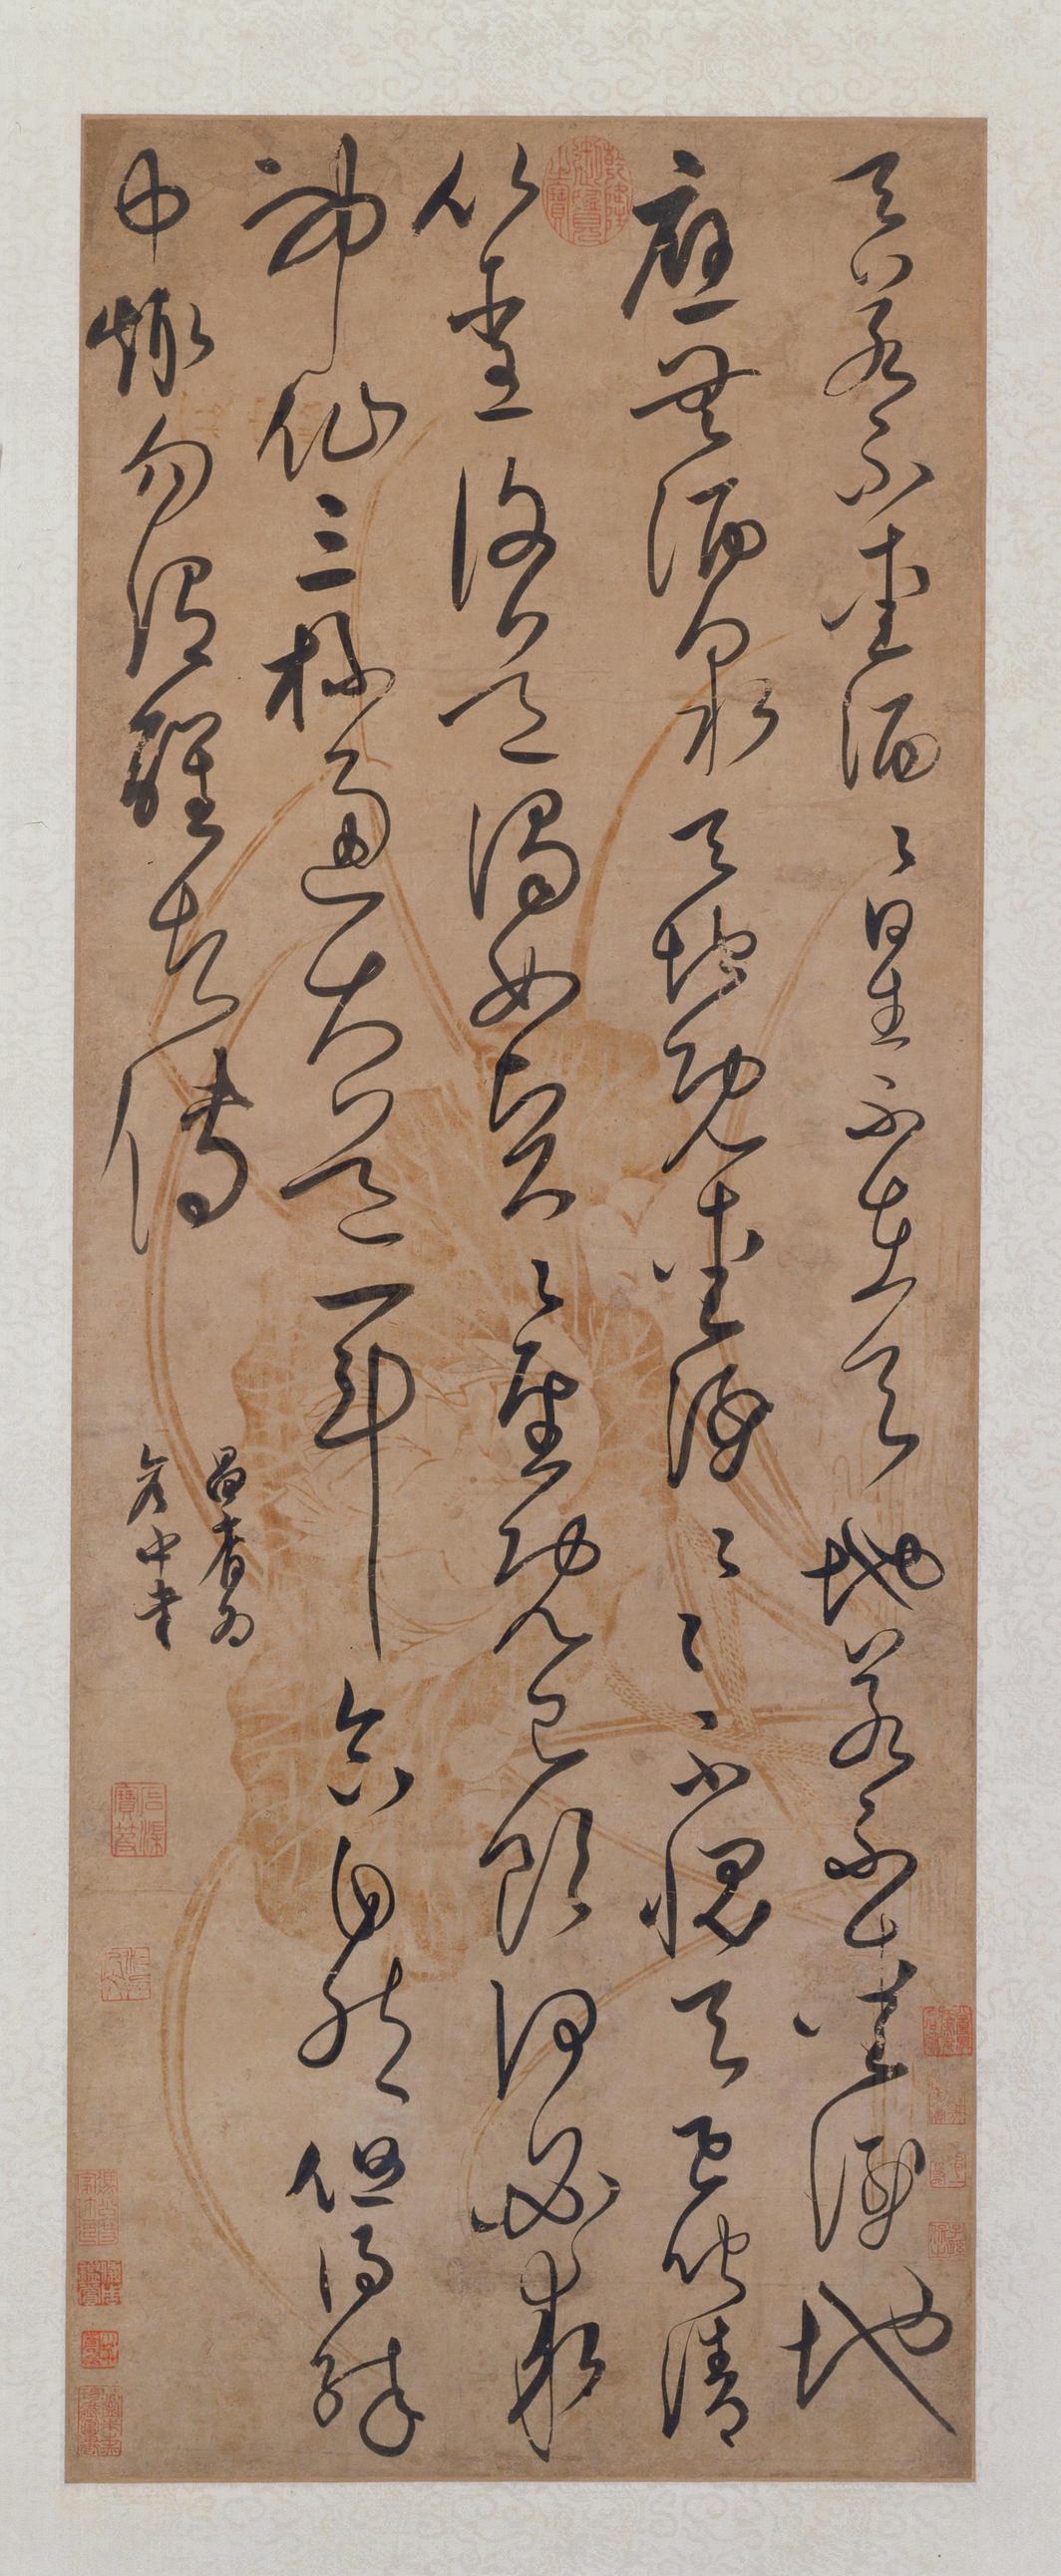 天若不愛酒〻星不在天地若不愛酒地
應無酒泉天地既愛酒〻〻不愧天已聞清
比聖復道濁如賢〻聖既已飲何必求
神仙三杯通大道一斗合自然但得醉
中趣勿謂醒者傳
乾隆御覽之寶
石渠寶笈